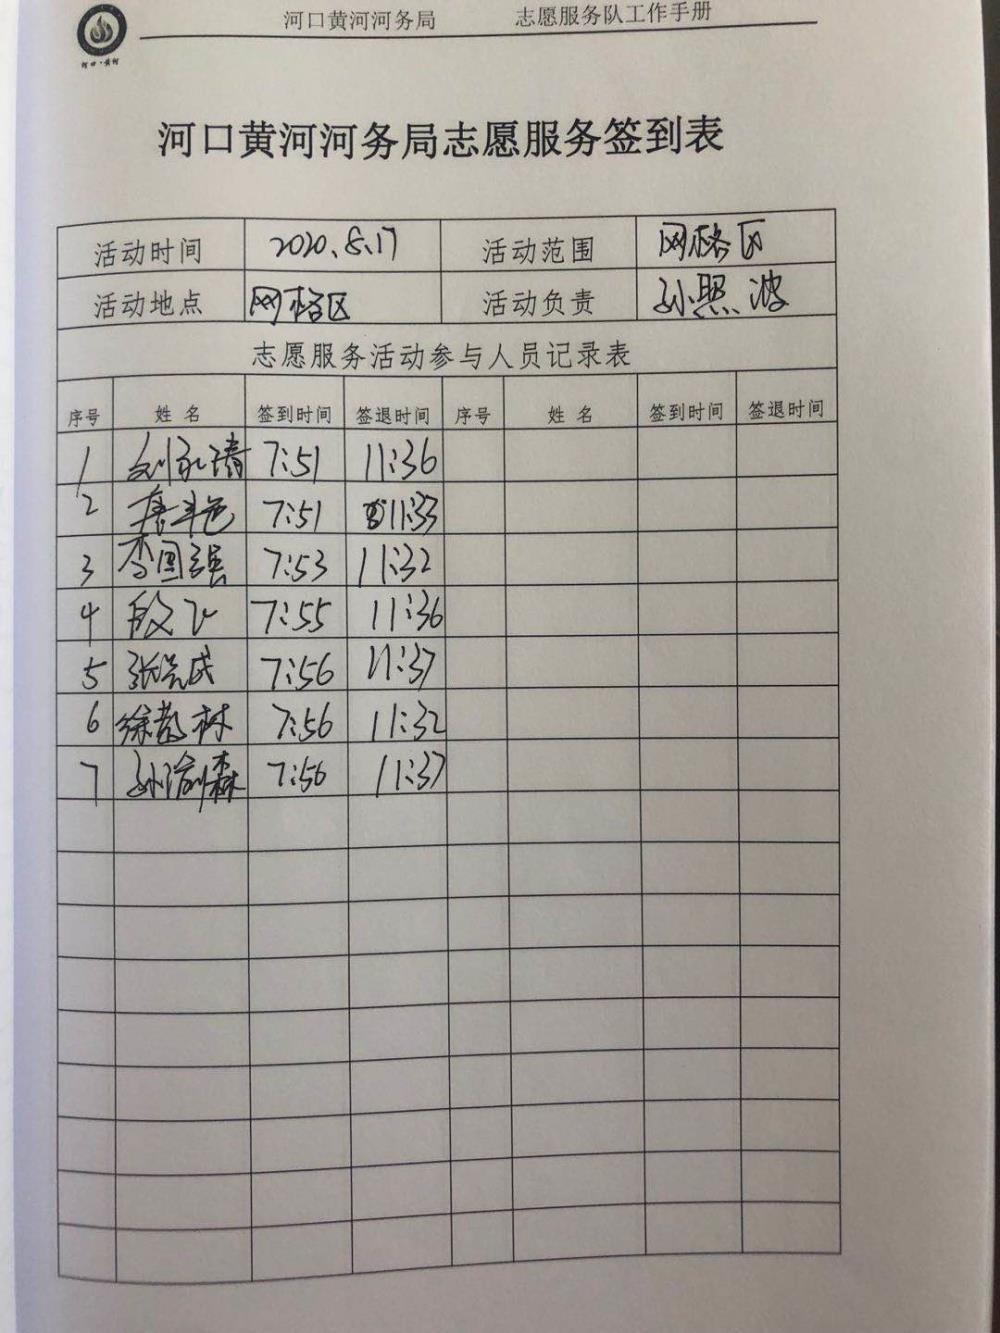 河口黄河河务局 志愿服务队工作手册
河口·黄河
河口黄河河务局志愿服务签到表
活动时间 2020.8.17 活动范围 网格区
活动地点 网格区 活动负责 孙照波
志愿服务活动参与人员记录表
序号 姓名 签到时间 签退时间 序号 姓名 签到时间 签退时间
1 刘永清 7:51 11:36
2 7:51 11:33
3 李国强 7:53 11:32
4 段飞 7:55 11:36
5 7:56 11:37
6 7:56 11:32
7 7:56 11:37